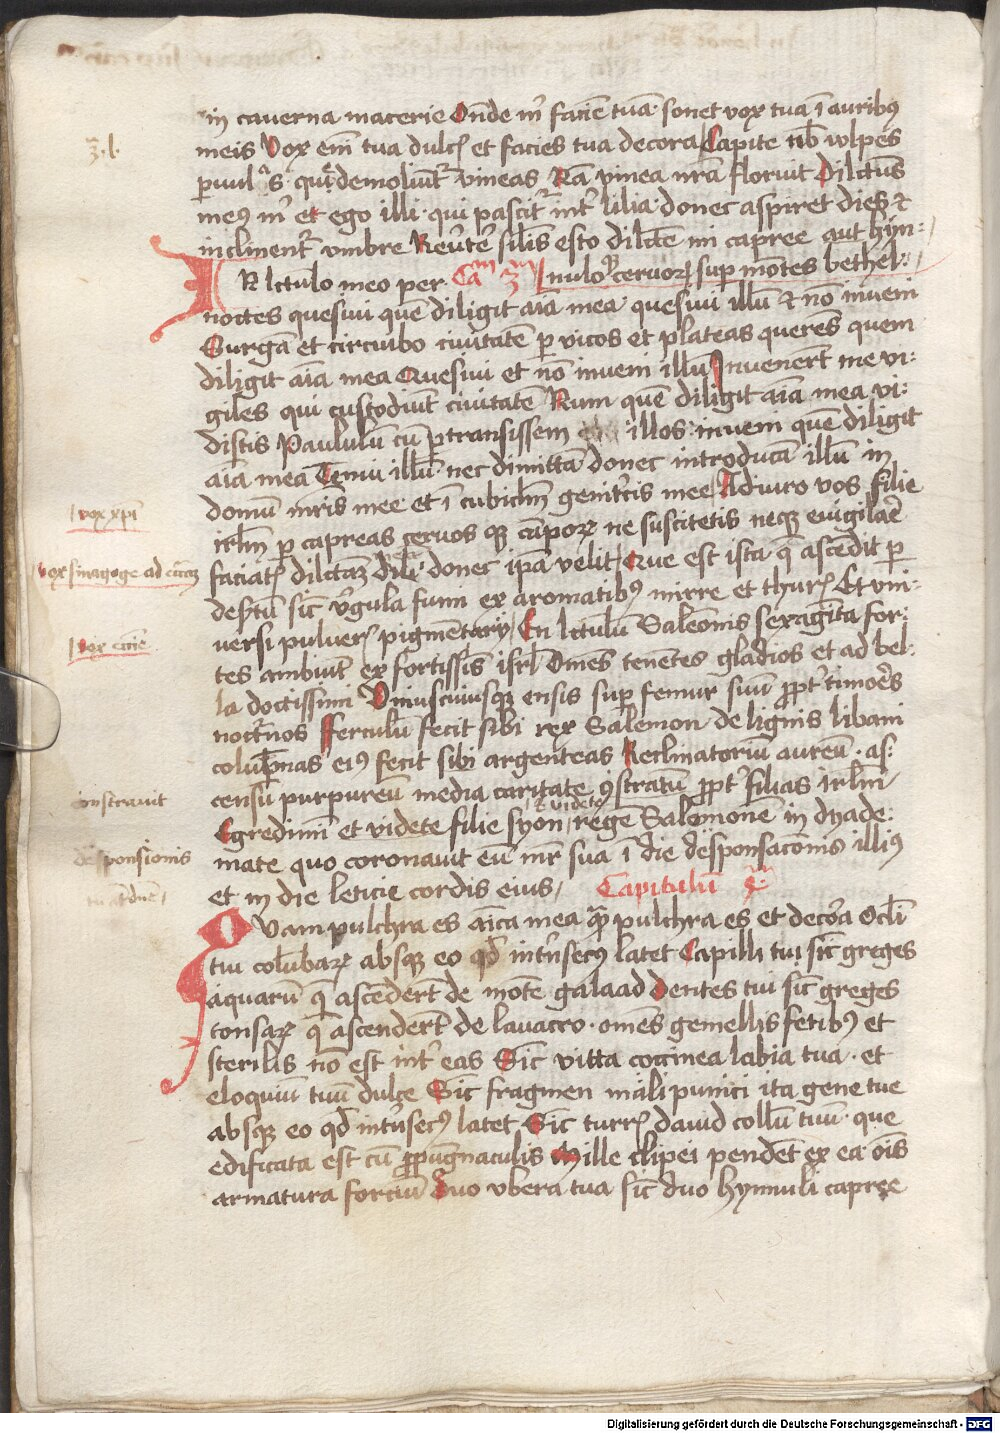 in caverna macerie Onde m̄ faciē tuā sonet vox tua ī auribꝰ
meis Vox em̄ tua dulcꝭ et facies tua decora Capite nob̄ vulpes
ꝑuulas que demoliunt᷑ vineas Nā vinea nr̄a floruit Dilctus
meꝰ m̄ et ego illi qui pascit᷑ int̄ lilia donec aspiret dies ⁊
inclinent᷑ vmbre Reūte sil̄is esto dilc̄te mi capree aut hyn⸗
nuloqꝫ ceruoꝝ suꝑ mōtes bethel
IN lctulo meo per Cam 3m
noctes quesiui quē diligit aīa mea quesiui illū ⁊ nō inueni
Surgā et circuibo ciuitatē ꝑ vicos et plateas querēs quem
diligit aīa mea Quesiui et nō inueni illū Inuenert̄ me vi⸗
giles qui custodiūt ciuitatē Num quē diligit aīa mea vi⸗
distis Paululū cū ꝑtransissem illos inueni quē diligit
aīa mea Tenui illū nec dimittā donec introducā illū in
domū mr̄is mee et ī cubiclm̄ genitͥcis mee Adiuro vos filie
irl̄m ꝑ capreas ceruos qꝫ cāpoꝝ ne suscitetis neqꝫ euigilar̄e
faciatꝭ dilctaꝫ donec ip̄a velit Que est ista q̄ ascēdit ꝑ
desr̄tū sic̄ v̄gula fumi ex aromatibꝰ mirre et thurꝭ Et vni⸗
versi pulverꝭ pigmētarij En lctulū Salōonis sexagīta for⸗
tes ambiūt ex fortissīs isrl̄ Om̄es tenētes gladios et ad bel⸗
la doctissimi Vniuscuiusqꝫ ensis suꝑ femur suū ꝓpt̄ timōes
noctᷣnos Fferculū fecit sibi rex Salemon de lignis libani
colūpnas eiꝰ fecit sibi argenteas Reclinatoriū aureū as⸗
censū purpureū media caritate ꝯstratū ꝓpt̄ filias irl̄m
Egredimī et videte filie syon regē Salomonē in dyade⸗
& videte
mate quo coronauit eū mr̄ sua ī die desponsacōnis illiꝰ
et in die leticie cordis eius Capitulū
QVam pulchra es aīca mea qꝫ pulchra es et decōa Ocl̄i
tui colūbaꝝ absqꝫ eo qd̄ int̄nsecꝰ latet Capilli tui sic̄ greges
aquarū q̄ ascēdert̄ de mōte galaad Dentes tui sic̄ greges
tonsaꝝ q̄ ascendert̄ de lauacro om̄es gemellis fetibꝰ et
sterilis nō est int̄ eas Sic̄ vitta coccinea labia tua et
eloquiū tuū dulce Sic̄ fragmen mali punici ita gene tue
absqꝫ eo qd̄ int̄nsecꝰ latet Sic̄ turrꝭ dauid collū tuū que
edificata est cū ꝓpūgnaculis Mille clipei pendēt ex ea oīs
armatura forciū Duo vbera tua sic̄ duo hynnuli capree
vox xpī
vox sinagoge ad
vox
constrauit
desponsionis